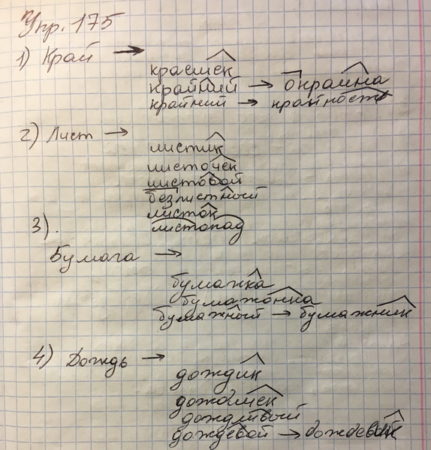 Упр. 175
1) Край →
краешек
крайний → окраина
крайний → крайность
2) Лист →
листик
листочек
листовой
безлистный
листок
листопад
3).
Бумага →
бумажка
бумажонка
бумажный → бумажник
4) Дождь →
дождик
дождишек
дождливый
дождевой → дождевик